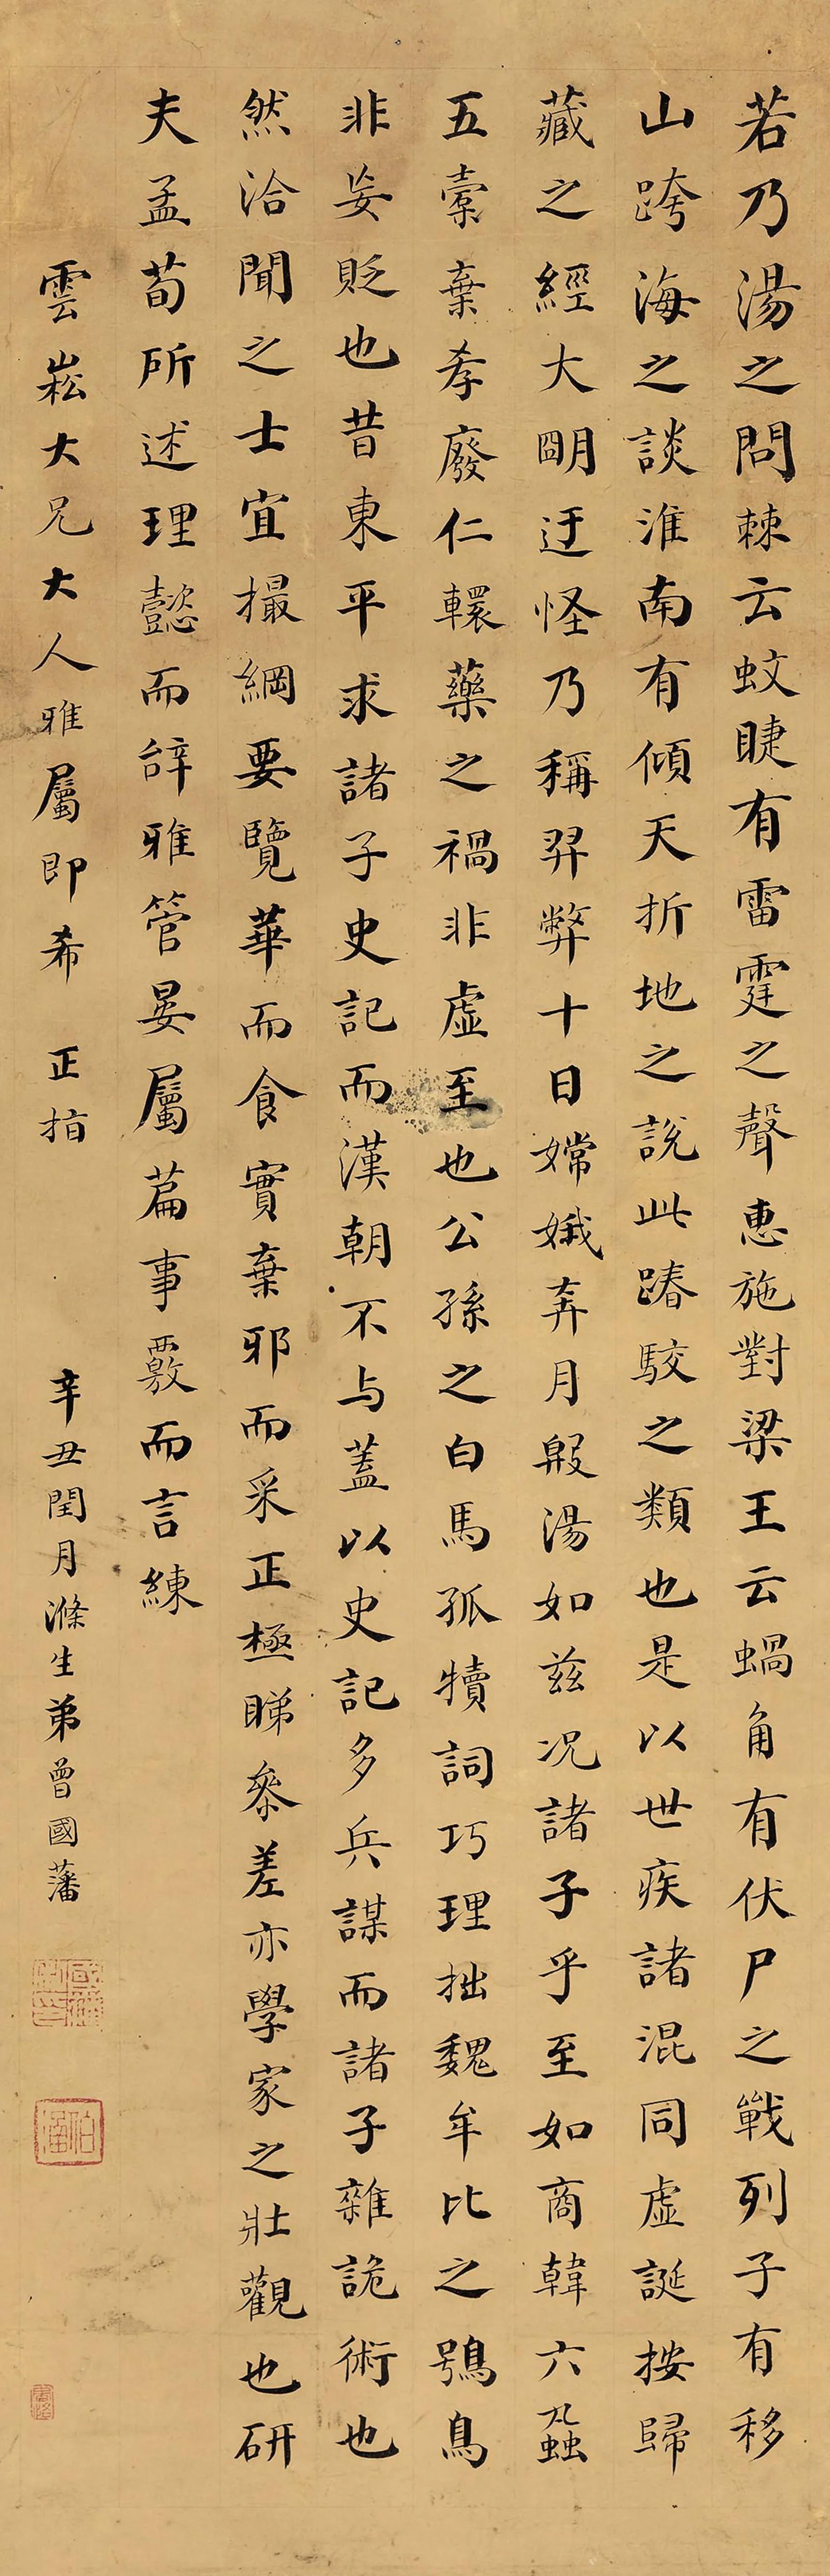 若乃湯之問棘云蚊睫有雷霆之聲惠施對梁王云蝸角有伏尸之戰列子有移
山跨海之談淮南有傾天折地之說此踳駮之類也是以世疾諸混同虛誕按歸
藏之經大明迂怪乃稱羿弊十日嫦娥奔月殷湯如茲况諸子乎至如商韓六蝨
五蠹棄孝廢仁轘藥之禍非虛至也公孫之白馬孤犢詞巧理拙魏牟比之鴞鳥
非妄貶也昔東平求諸子史記而漢朝不与蓋以史記多兵謀而諸子雜詭術也
然洽聞之士宜撮綱要覽華而食實棄邪而采正極睇參差亦學家之壯觀也研
夫孟荀所述理懿而辝雅管晏屬篇事覈而言練
雲崧大兄大人雅屬即希 正拍
辛丑閏月滌生弟曾國藩